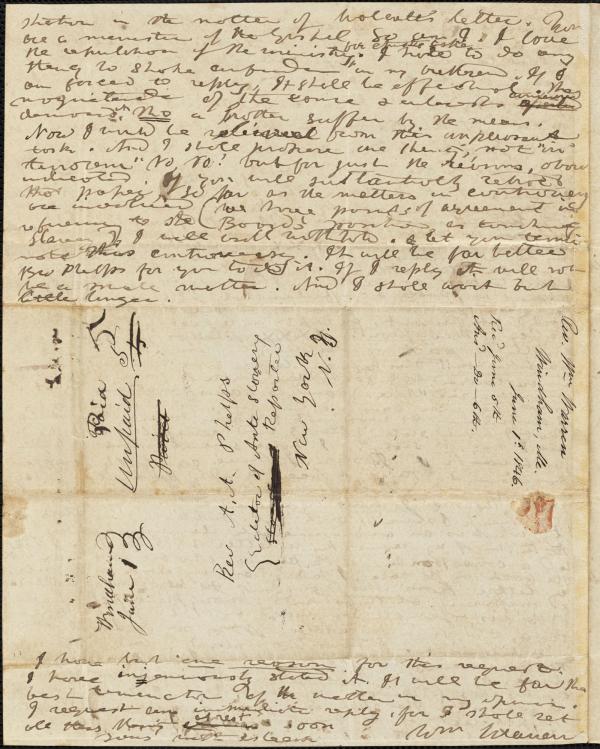 in the matter of Walcotts letter. You
are a minister of the Gospel. So am I. I love
the reputation of the ministry for Christs sake. I hate to do any
thing to shake confidence in my brethren. If I
am forced to reply, it shall be effectual. The
magnitude of the cause & interests
demands. Tho a brother suffer by the means.
Now I wish to be released from this unpleasant
task. And I shall propose one thing, not "in
terrorem" No, No! but for just the reasons, above
indicated. If you will substantially retract
that paper, so far as the matters in controversy
are involved (we have points of agreement in
reference to the Boards position as touching
Slavery) I will withhold. & let you
note this controversy. It will be far better
Bro Phelps for you to do it. If I reply it will not
be a small matter. And I shall wait but
little longer.
Rev. Wm Warren
Windham, Me.
June 1st 1846.
Recd June 5th
Ansd 6th.
Paid 5
Unpaid 5
Windham
June 13
Rev. A. A. Phelps
Editor of Ante Slavery
Reporter
New York
N. Y.
I have but one reason for this request.
I have ingenuously stated it. It will be far the
best termination of the matter in my opinion.
I request an immediate reply, for I shall set
soon
Yours with esteem
Wm Warren